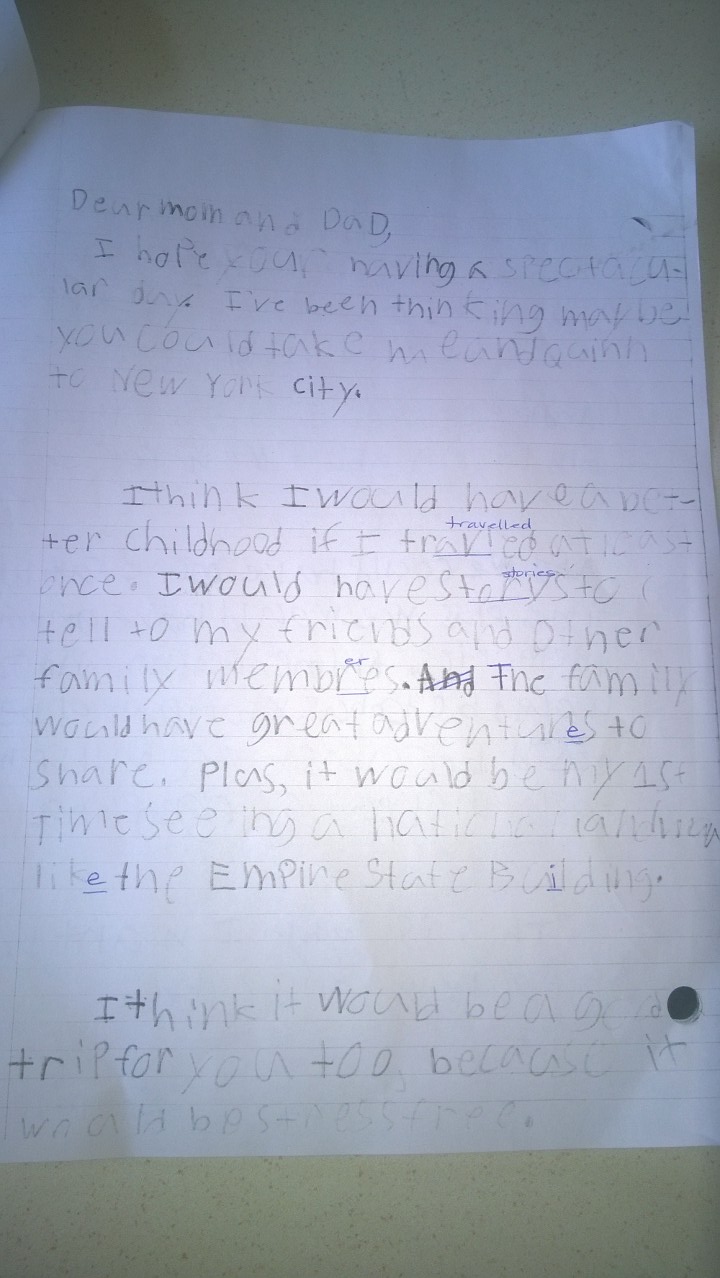 Dear mom and DaD,
I hope your having a spectacu-
lar day. I've been thinking maybe
you could take me and Quinn
to New York city.
I think I would have a bet-
ter childhood if I travled at least
travelled
once. I would have storys to
stories
tell to my friends and other
family membres. And The family
er
would have great adventures to
share. Plus, it would be my 1st
Time seeing a national
like the Empire State Building.
I think it would be a good
trip for you too, because it
would be stress free.